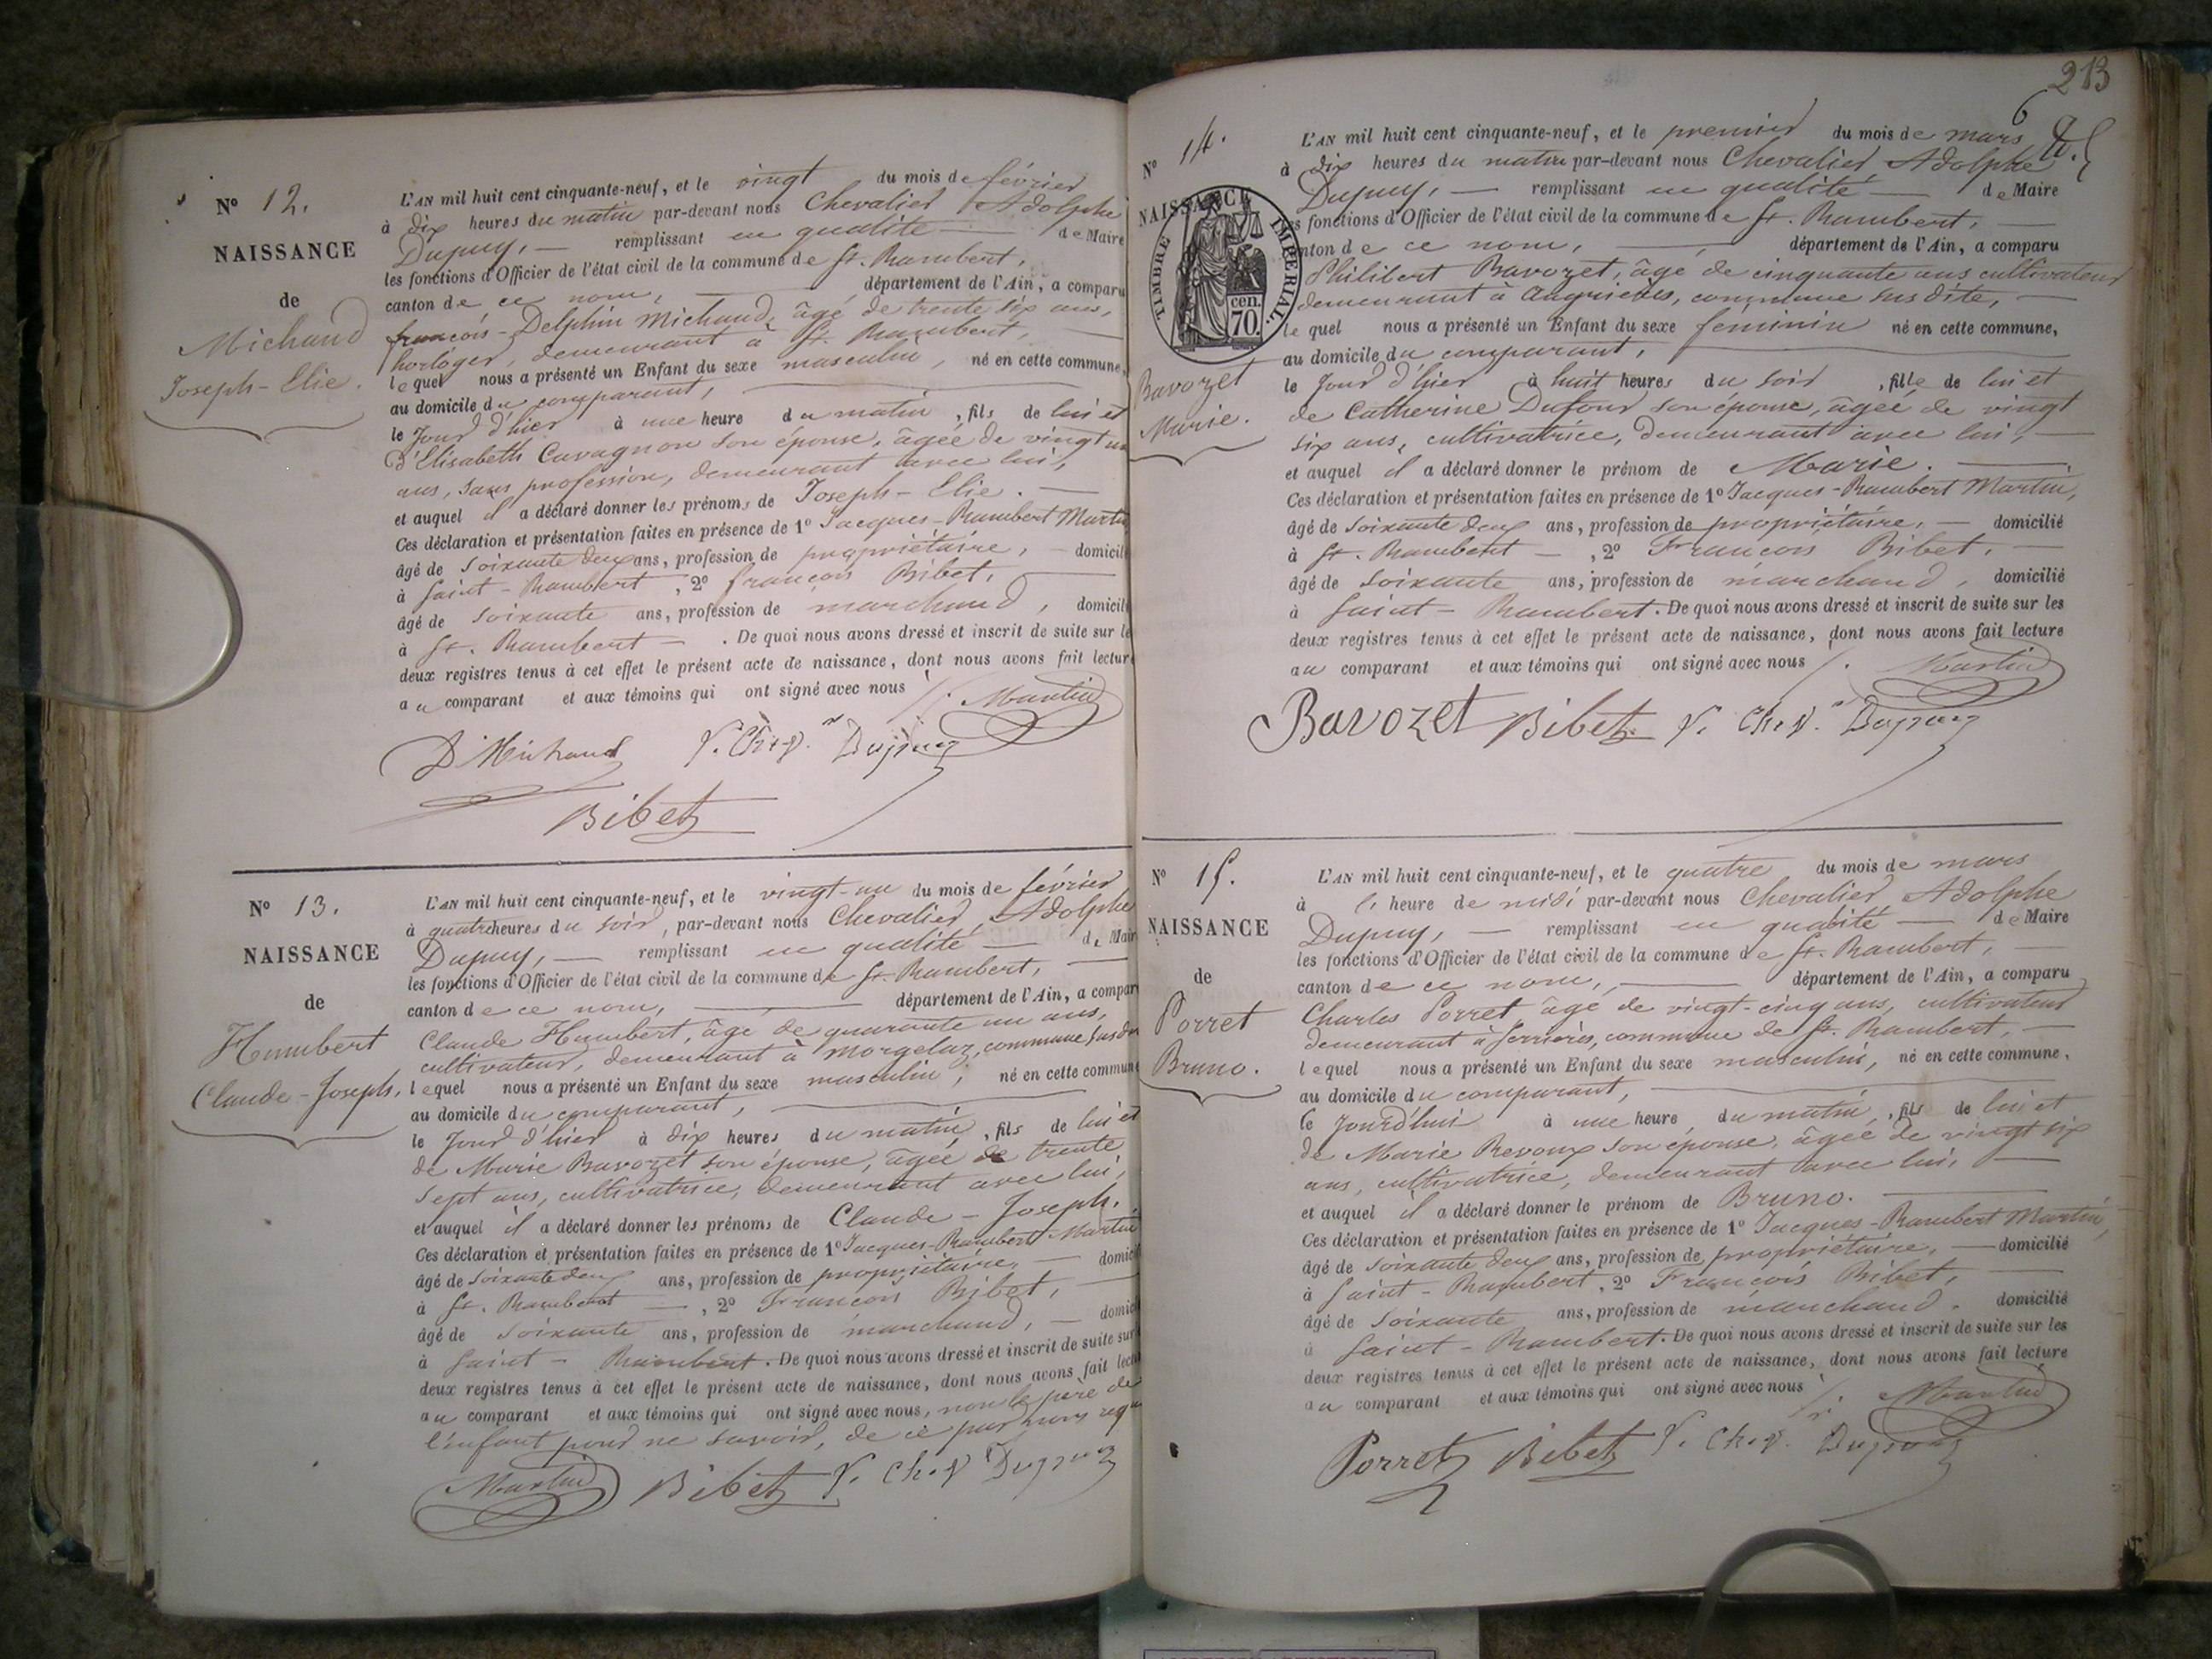 N° 12.
NAISSANCE
de
Michaud
Joseph-Elie.
L'AN mil huit cent cinquante-neuf, et le vingt du mois de février
à dix heures du matin par-devant nous Chevalier Adolphe
Dupuy, — remplissant en qualité — de Maire
les fonctions d'Officier de l'état civil de la commune de St. Rambert,
canton de ce nom, — département de l'Ain, a comparu
françois-Delphin Michaud, âgé de trente six ans,
horloger, demeurant à St. Rambert,
lequel nous a présenté un Enfant du sexe masculin, né en cette commune,
au domicile du comparant,
le Jour d'hier à une heure du matin, fils de lui et
d'Elisabeth Cavagnon son épouse, âgée de vingt un
ans, sans profession, demeurant avec lui,
et auquel il a déclaré donner les prénoms de Joseph-Elie. —
Ces déclaration et présentation faites en présence de 1° Jacques-Rambert Martin
âgé de soixante deux ans, profession de propriétaire, — domicil
à Saint-Rambert, 2° françois Bibet,
âgé de soixante ans, profession de marchand, domicil
à St. Rambert — . De quoi nous avons dressé et inscrit de suite sur le
deux registres tenus à cet effet le présent acte de naissance, dont nous avons fait lectur
au comparant et aux témoins qui ont signé avec nous /. Martin
D Michaud V. Ch.er Dupuy
Bibet
N° 13.
NAISSANCE
de
Humbert
Claude-Joseph.
L'AN mil huit cent cinquante-neuf, et le vingt-un du mois de février
à quatre heures du soir, par-devant nous Chevalier Adolphe
Dupuy, — remplissant en qualité — de Mair
les fonctions d'Officier de l'état civil de la commune de St. Rambert,
canton de ce nom, — département de l'Ain, a compar
Claude Humbert, âgé de quarante un ans,
cultivateur, demeurant à Morgelaz, commune susdite
lequel nous a présenté un Enfant du sexe masculin, né en cette commune
au domicile du comparant,
le Jour d'hier à dix heures du matin, fils de lui et
de Marie Bavozet son épouse, âgée de trente
sept ans, cultivatrice, demeurant avec lui,
et auquel il a déclaré donner les prénoms de Claude-Joseph.
Ces déclaration et présentation faites en présence de 1° Jacques-Rambert Martin
âgé de soixante deux ans, profession de propriétaire, — domicil
à St. Rambert —, 2° François Bibet,
âgé de soixante ans, profession de marchand, — domic
à Saint-Rambert. De quoi nous avons dressé et inscrit de suite sur
deux registres tenus à cet effet le présent acte de naissance, dont nous avons fait lect
au comparant et aux témoins qui ont signé avec nous, non le père de
l'enfant pour ne savoir, de ce par nous requ
Martin Bibet V. Ch.er Dupuy
213
6
N° 14.
NAISSANCE
TIMBRE IMPÉRIAL.
cen.
70.
Bavozet
Marie.
L'AN mil huit cent cinquante-neuf, et le premier du mois de mars
à dix heures du matin par-devant nous Chevalier Adolphe
Dupuy, — remplissant en qualité — de Maire
s fonctions d'Officier de l'état civil de la commune de St. Rambert,
nton de ce nom, — département de l'Ain, a comparu
Philibert Bavozet, âgé de cinquante ans cultivateur
demeurant à Angrières, commune sus dite, —
lequel nous a présenté un Enfant du sexe féminin né en cette commune,
au domicile du comparant,
le Jour d'hier à huit heures du soir, fille de lui et
de Catherine Dufour son épouse, âgée de vingt
six ans, cultivatrice, demeurant avec lui, —
et auquel il a déclaré donner le prénom de Marie. —
Ces déclaration et présentation faites en présence de 1° Jacques-Rambert Martin,
âgé de soixante deux ans, profession de propriétaire, — domicilié
à St. Rambert —, 2° François Bibet, —
âgé de soixante ans, profession de marchand, domicilié
à Saint-Rambert. De quoi nous avons dressé et inscrit de suite sur les
deux registres tenus à cet effet le présent acte de naissance, dont nous avons fait lecture
au comparant et aux témoins qui ont signé avec nous /. Martin
Bavozet Bibet V. Ch.er Dupuy
N° 15.
NAISSANCE
de
Porret
Bruno.
L'AN mil huit cent cinquante-neuf, et le quatre du mois de mars
à l' heure de midi par-devant nous Chevalier Adolphe
Dupuy, — remplissant en qualité — de Maire
les fonctions d'Officier de l'état civil de la commune de St. Rambert, —
canton de ce nom, — département de l'Ain, a comparu
Charles Porret, âgé de vingt-cinq ans, cultivateur
demeurant à Serrières, commune de St. Rambert, —
lequel nous a présenté un Enfant du sexe masculin, né en cette commune,
au domicile du comparant,
le Jourd'hui à une heure du matin, fils de lui et
de Marie Revoux son épouse, âgée de vingt six
ans, cultivatrice, demeurant avec lui, —
et auquel il a déclaré donner le prénom de Bruno. —
Ces déclaration et présentation faites en présence de 1° Jacques-Rambert Martin,
âgé de soixante deux ans, profession de propriétaire, — domicilié
à Saint-Rambert, 2° François Bibet,
âgé de soixante ans, profession de marchand. domicilié
à Saint-Rambert. De quoi nous avons dressé et inscrit de suite sur les
deux registres tenus à cet effet le présent acte de naissance, dont nous avons fait lecture
au comparant et aux témoins qui ont signé avec nous /. Martin
Porret Bibet V. Ch.er Dupuy